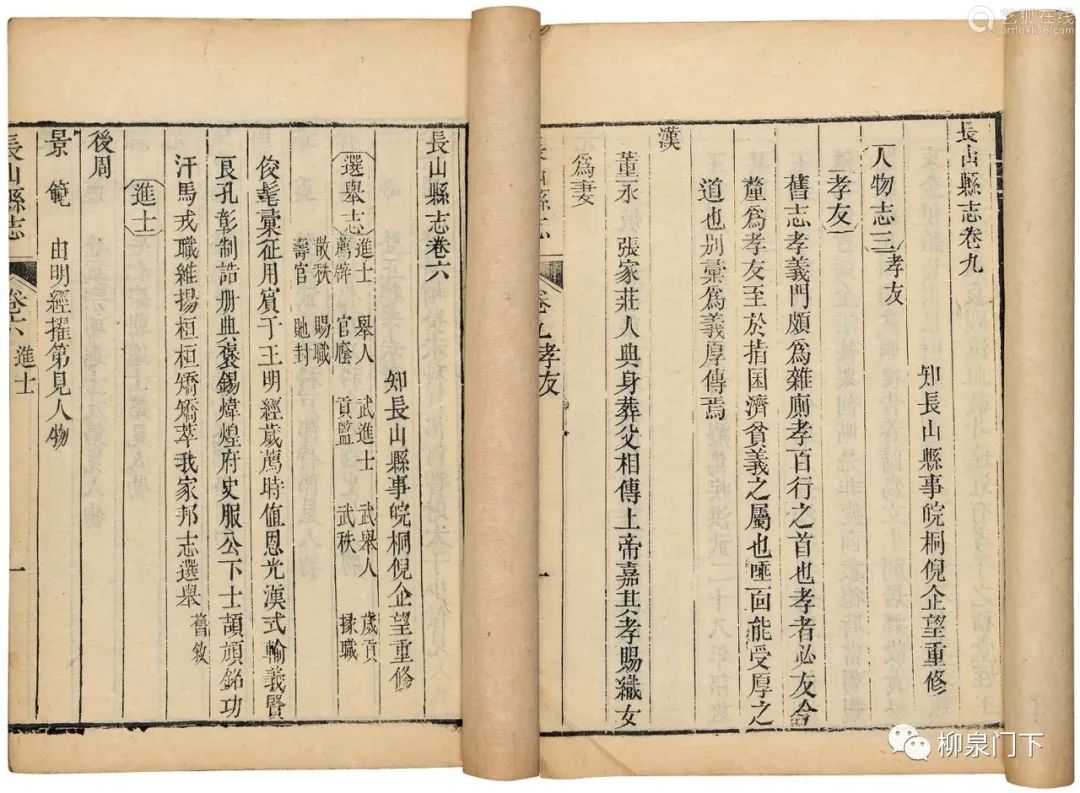 長山縣志卷九
知長山縣事皖桐倪企望重修
人物志三 孝友
孝友
舊志孝義門頗爲雜廁孝百行之首也孝者必友合
釐爲孝友至於指囷濟貧義之屬也匪面能受厚之
道也別彙爲義厚傳焉
漢
董永 張家莊人典身葬父相傳上帝嘉其孝賜織女
爲妻
卷九 孝友
一
長山縣志卷六
知長山縣事皖桐倪企望重修
選舉志 進士 舉人 武進士 武舉人 歲貢
薦辟 官廕 貢監 武秩 掾職
散秩 賜職
壽官 貤封
俊髦彙征用賓于王明經歲薦時值恩光漢式輸義賢
良孔彰制誥册典褒錫煒煌府史服公下士頡頏銘功
汗馬戎職維揚桓桓矯矯萃我家邦志選舉 舊敘
進士
後周
景範 由明經擢第見人物
長山縣志
卷六 進士
一
艺狐在线
artfoxlive.com
柳泉门下